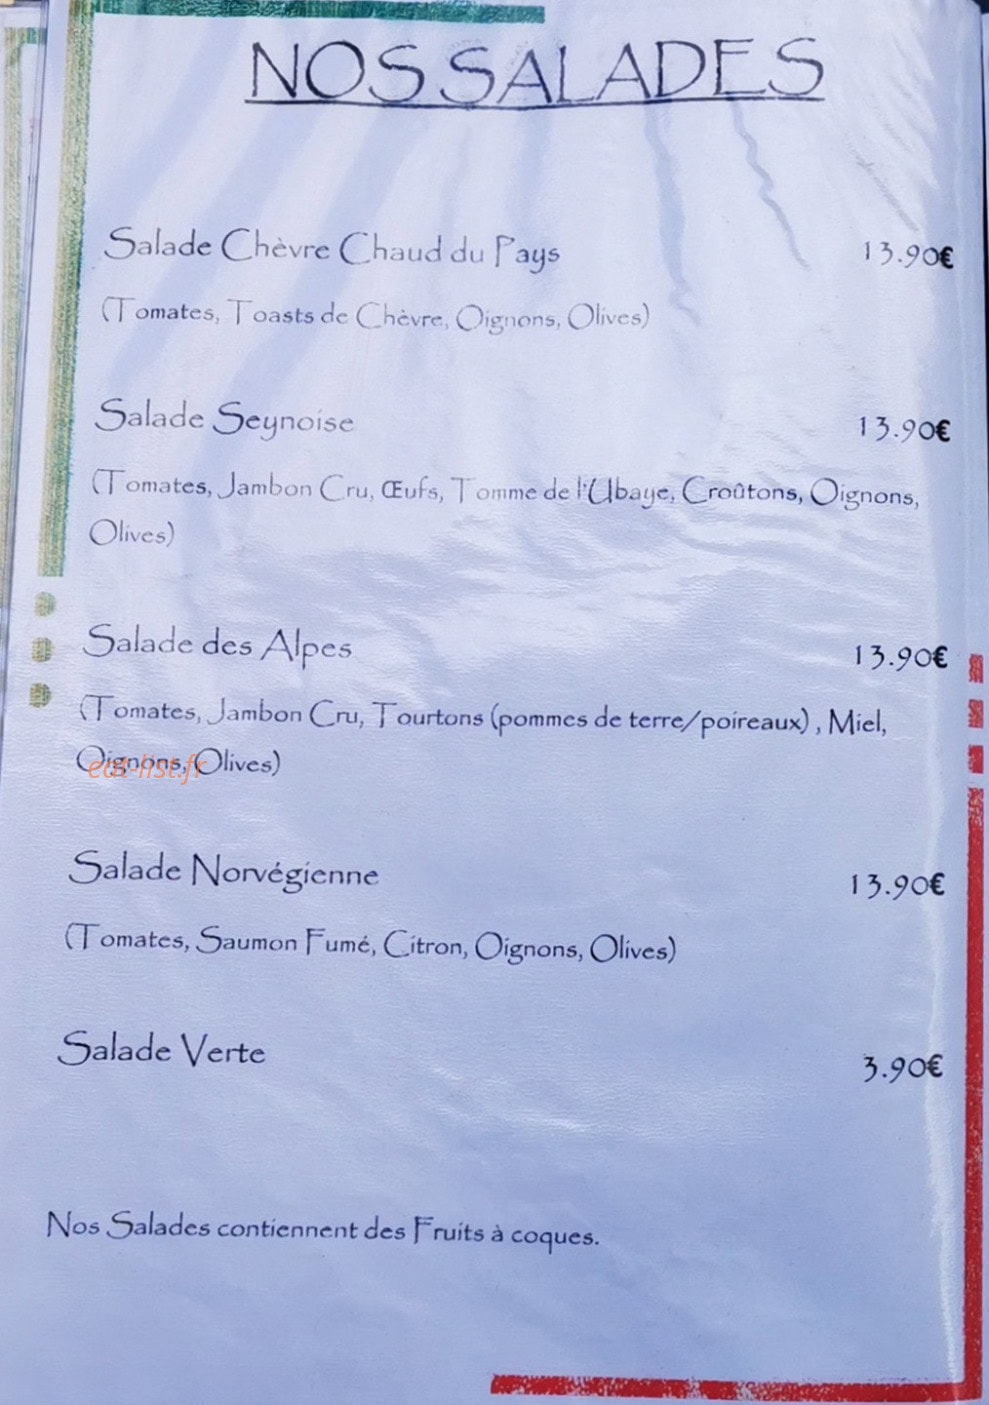 NOS SALADES
Salade Chèvre Chaud du Pays 13.90€
(Tomates, Toasts de Chèvre, Oignons, Olives)
Salade Seynoise 13.90€
(Tomates, Jambon Cru, Œufs, Tomme de l'Ubaye, Croûtons, Oignons,
Olives)
Salade des Alpes 13.90€
(Tomates, Jambon Cru, Tourtons (pommes de terre/poireaux) , Miel,
Oignons, Olives)
eat-list.fr
Salade Norvégienne 13.90€
(Tomates, Saumon Fumé, Citron, Oignons, Olives)
Salade Verte 3.90€
Nos Salades contiennent des Fruits à coques.